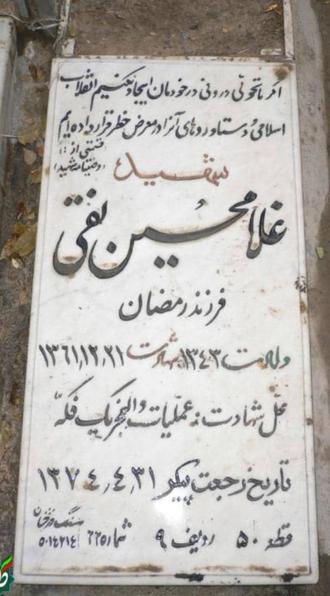 اگر ما تحولی درونی در خودمان ایجاد نکنیم انقلاب
اسلامی و دستاوردهای آنرا در معرض خطر قرار داده ایم
قسمتی از
وصیتنامه شهید
شهید
غلامحسین نفتی
فرزند رمضان
ولادت ۱۳۴۳ شهادت ۱۳۶۱,۱۲,۲۱
محل شهادت: عملیات والفجر یک فکه
تاریخ رجعت پیکر ۱۳۷۴,۴,۳۱
قطعه ۵۰ ردیف ۹ شماره ۶۲۵
سنگ
۵۰۱۴۲۱۴